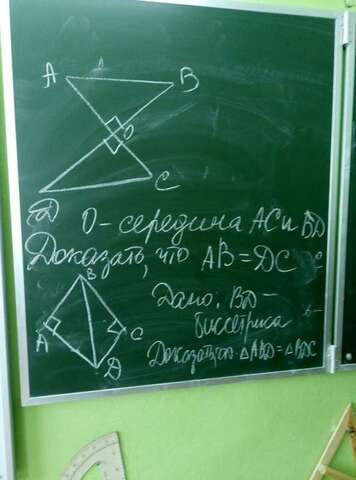 A B
O
C
D O-середина AC и BD
Доказать, что AB=DC
B
Дано: BD-
биссетриса
A C
D
Доказать: △ABD=△BDC